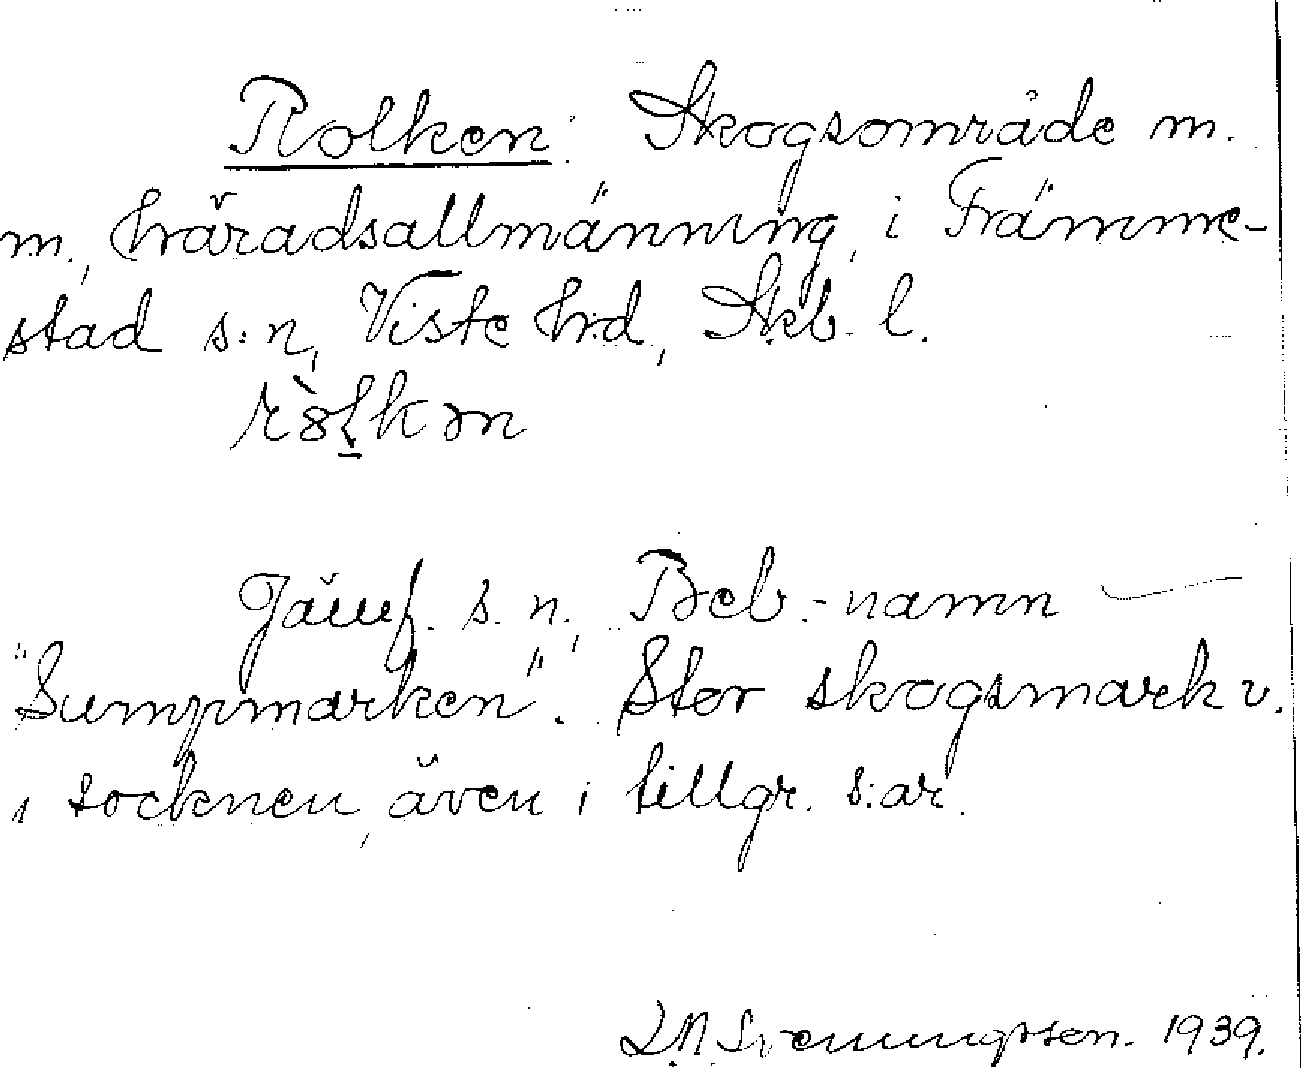 Rolken: Skogsområde m.
m., häradsallmänning, i Främme-
stad s:n, Viste hrd, Skb. l.
Jämf. s. n. Beb.-namn
"Sumpmarken". Stor skogsmark v.
i socknen, även i tillgr. s:ar.
Svenungsson. 1939.